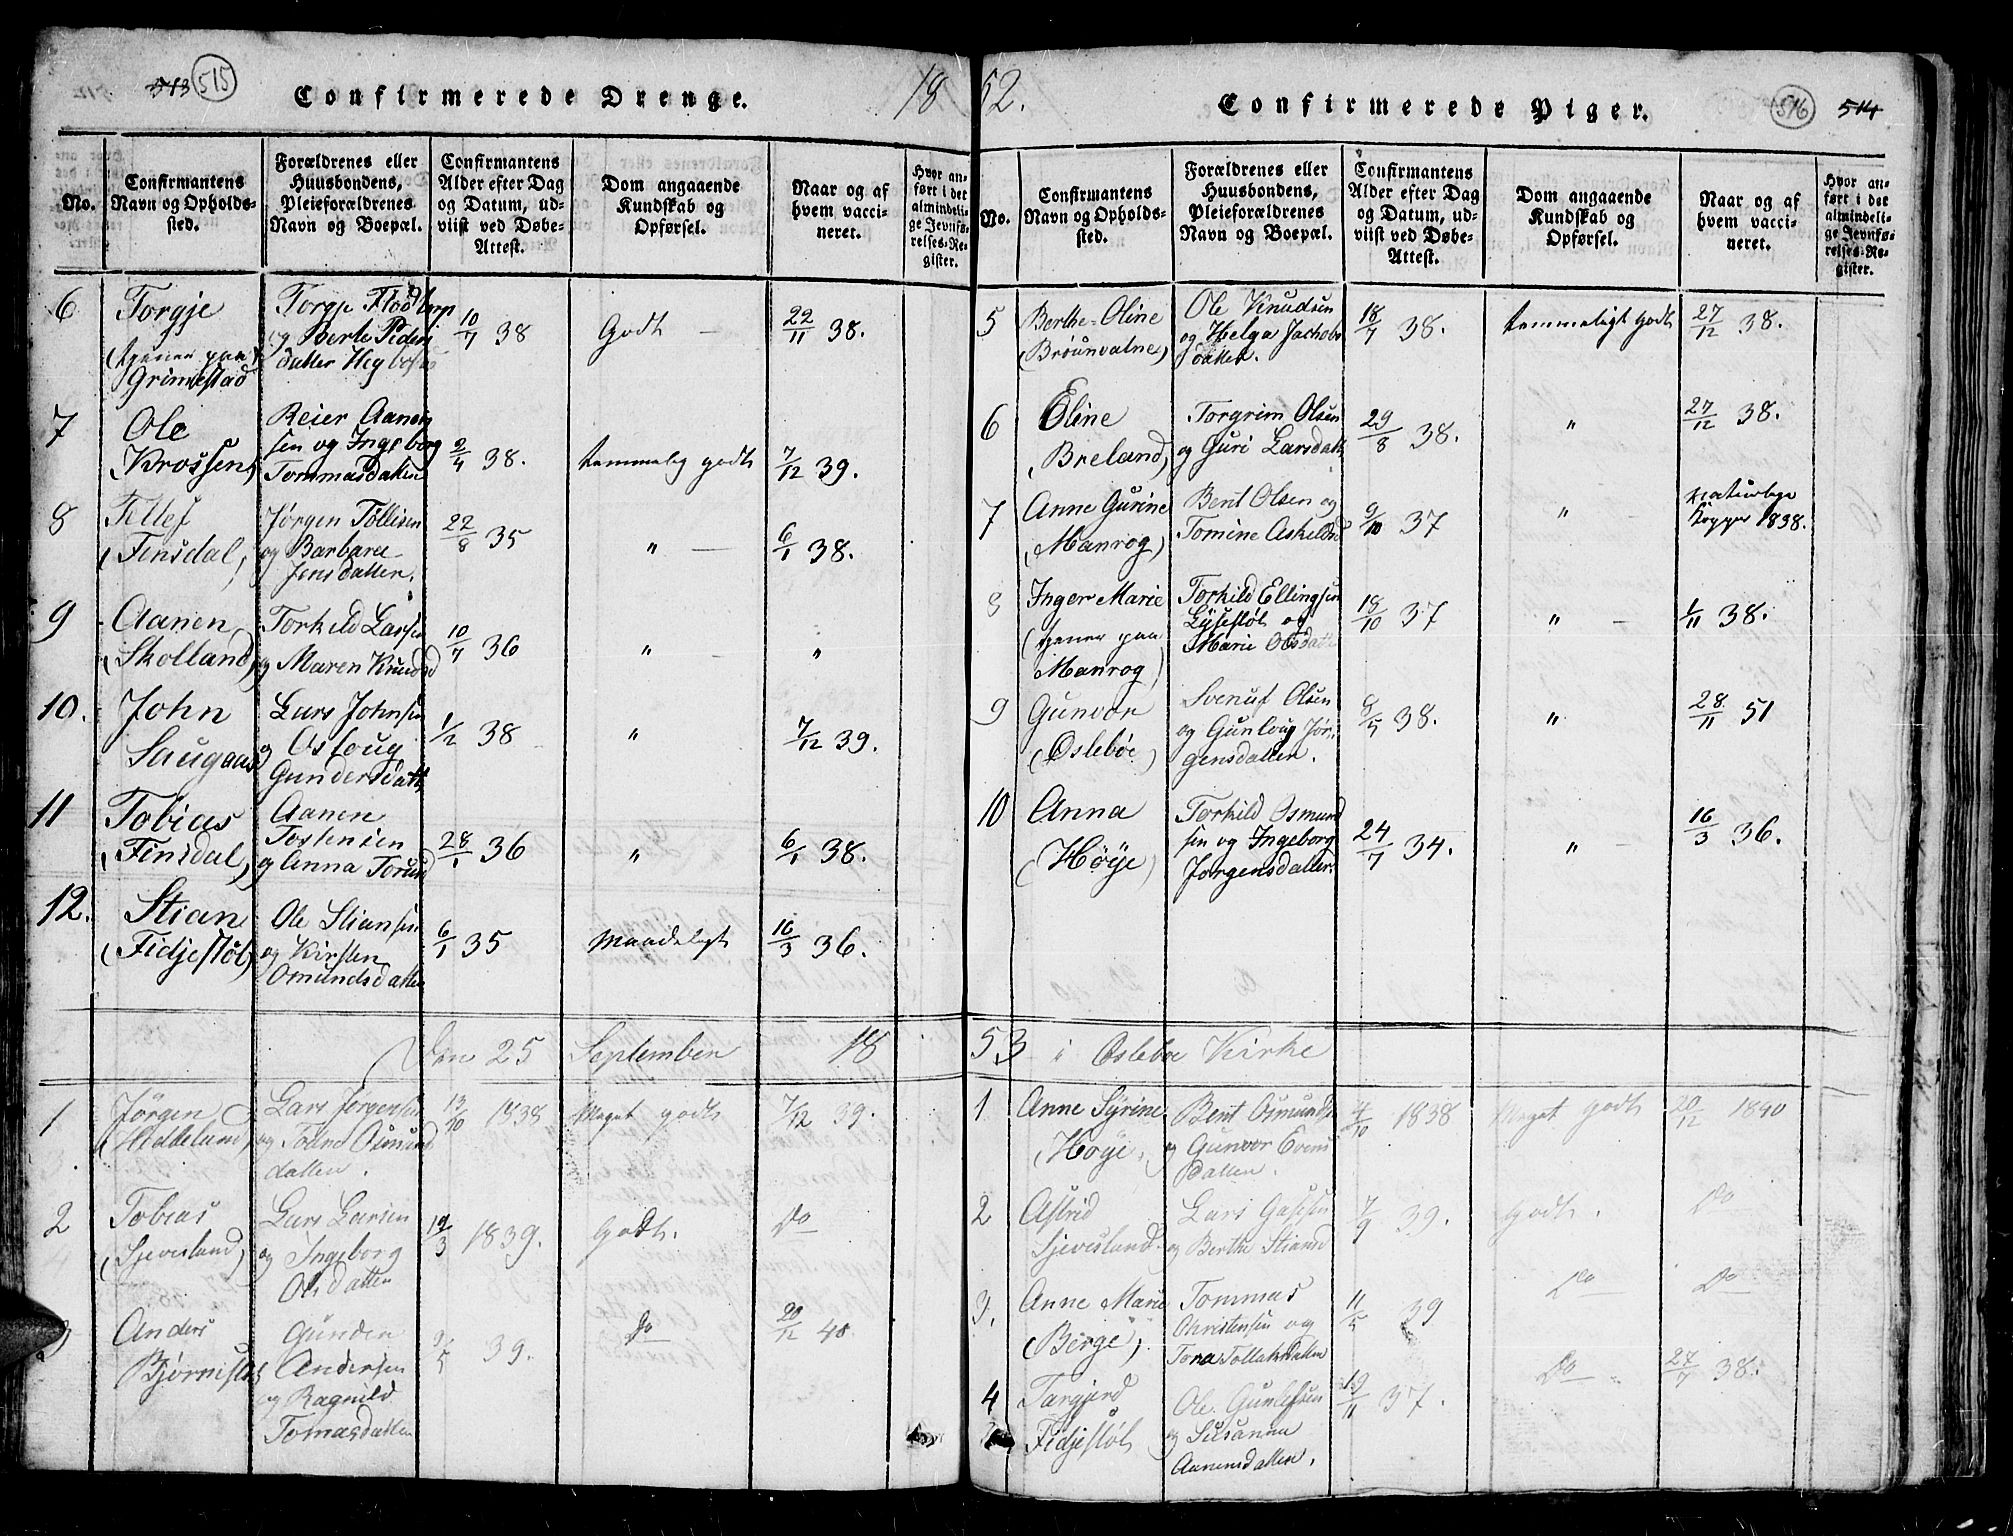 513 515
Confirmerede Drenge.
18
No.
Confirmantens
Navn og Opholds-
sted.
Forældrenes eller
Huusbondens,
Pleieforældrenes
Navn og Boepæl.
Confirmantens
Alder efter Dag
og Datum, ud-
viist ved Døbe-
Attest.
Dom angaaende
Kundskab og
Opførsel.
Naar og af
hvem vacci-
neret.
Hvor an-
ført i det
almindeli-
ge Jevnfø-
relses-Re-
gister.
6
Torgje
(tjener paa
Grimestad
Torgp
og Berte Peders
datter
10/7 38
Godt —
22/11 38.
7
Ole
(Krossen)
Reier Aanen
sen og Ingeborg
Tommasdatter
2/4 38.
temmelig godt
7/12 39.
8
Tellef
(Finsdal)
Jørgen Tollisen
og Barbara
Jensdatter.
22/8 35
" —
6/1 38.
9
Aanen
(Skolland)
Torkild Larsen
og Maren Knudsd
10/7 36
" —
"
10.
John
Saugaas
Lars Johnsen
og Osloug
Gundersdatt
1/12 38
"
7/12 39.
11
Tobias
(Finsdal)
Aanen
Tostensen
og Anna Torusd
28/1 36
"
6/1 38.
12.
Stian
(Fidjestøl)
Ole Stiansen
og Kirsten
Omundsdatter
6/1 35
Maadeligt
16/3 36.
Den 25 September 18
1
Jørgen
(Hidbeland)
Lars Jørgensen
og Tone Osmund
datter.
13/10 1838
Meget godt
7/12 39.
2
Tobias
(Sjevesland)
Lars Larsen
og Ingeborg
Olsdatter
19/3 1839.
Godt.
Do
3
Anders
Bjørnestøl
Gunder
Andersen
og Ragnild
Tomasdatter
9/5 39.
Do
20/12 40.
52.
Confirmerede Piger.
516 514
No.
Confirmantens
Navn og Opholds-
sted.
Forældrenes eller
Huusbondens,
Pleieforældrenes
Navn og Boepæl.
Confirmantens
Alder efter Dag
og Datum, ud-
viist ved Døbe-
Attest.
Dom angaaende
Kundskab og
Opførsel.
Naar og af
hvem vacci-
neret.
Hvor an-
ført i det
almindeli-
ge Jevnfø-
relses-Re-
gister.
5
Berthe Oline
(Brøunvatne)
Ole Knudsen
og Helga Jachobs
datter.
18/7 38.
temmeligt godt
27/12 38.
6
Eline
(Breland)
Torgrim Olsen
og Guri Larsdatt
29/8 38.
"
27/12 38.
7
Anne Gurine
(Manrog)
Bent Olsen og
Tomine Askeldsd
9/10 37
" —
naturlige
Kopper 1838.
8
Inger Marie
(tjener paa
Manrog)
Torkild Ellingsen
Lysestøl og
Marie Olsdatt
18/10 37
" —
1/11 38.
9
Gunvor
(Oslebøe)
Svenuf Olsen
og Gunloug Jør-
gensdatter.
8/5 38.
"
28/11 51
10
Anna
(Høije)
Torkild Osmund
sen og Ingeborg
Jørgensdatter.
24/7 34.
" —
16/3 36.
53 i Oslebøe Kirke
1
Anne Syrine
Høije,
Bent Osmunds
og Gunvor Evens
datter.
4/10 1838
Meget godt
20/12 1840
2
Astrid
Sjevesland.
Lars
og Berthe Stiansd
7/9 39.
Godt.
Do
3.
Anne Marie
(Berge)
Tommas
Christensen og
Tora Tollaksdatter
11/5 39
Do
Do
4
Targjerd
Fidjestøl
Ole Gunlefsen
og Susanna
Aanensdatter.
19/11 37.
Do
27/7 38.